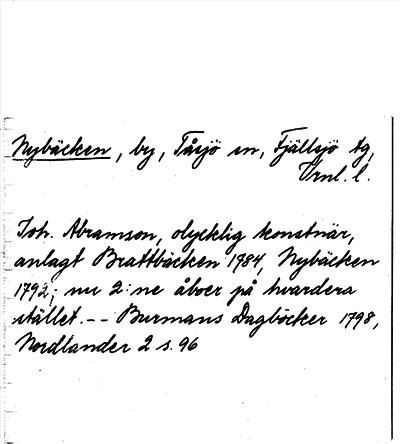 Nybäcken, by, Tåsjö sn, Fjällsjö tg,
Vrnl. l.
Joh. Abramson, olycklig konstnär,
anlagt Brattbäcken 1984, Nybäcken
1792; nu 2:ne åboer på hvardera
stället. -- Burmans Dagböcker 1798,
Nordlander 2 s. 96